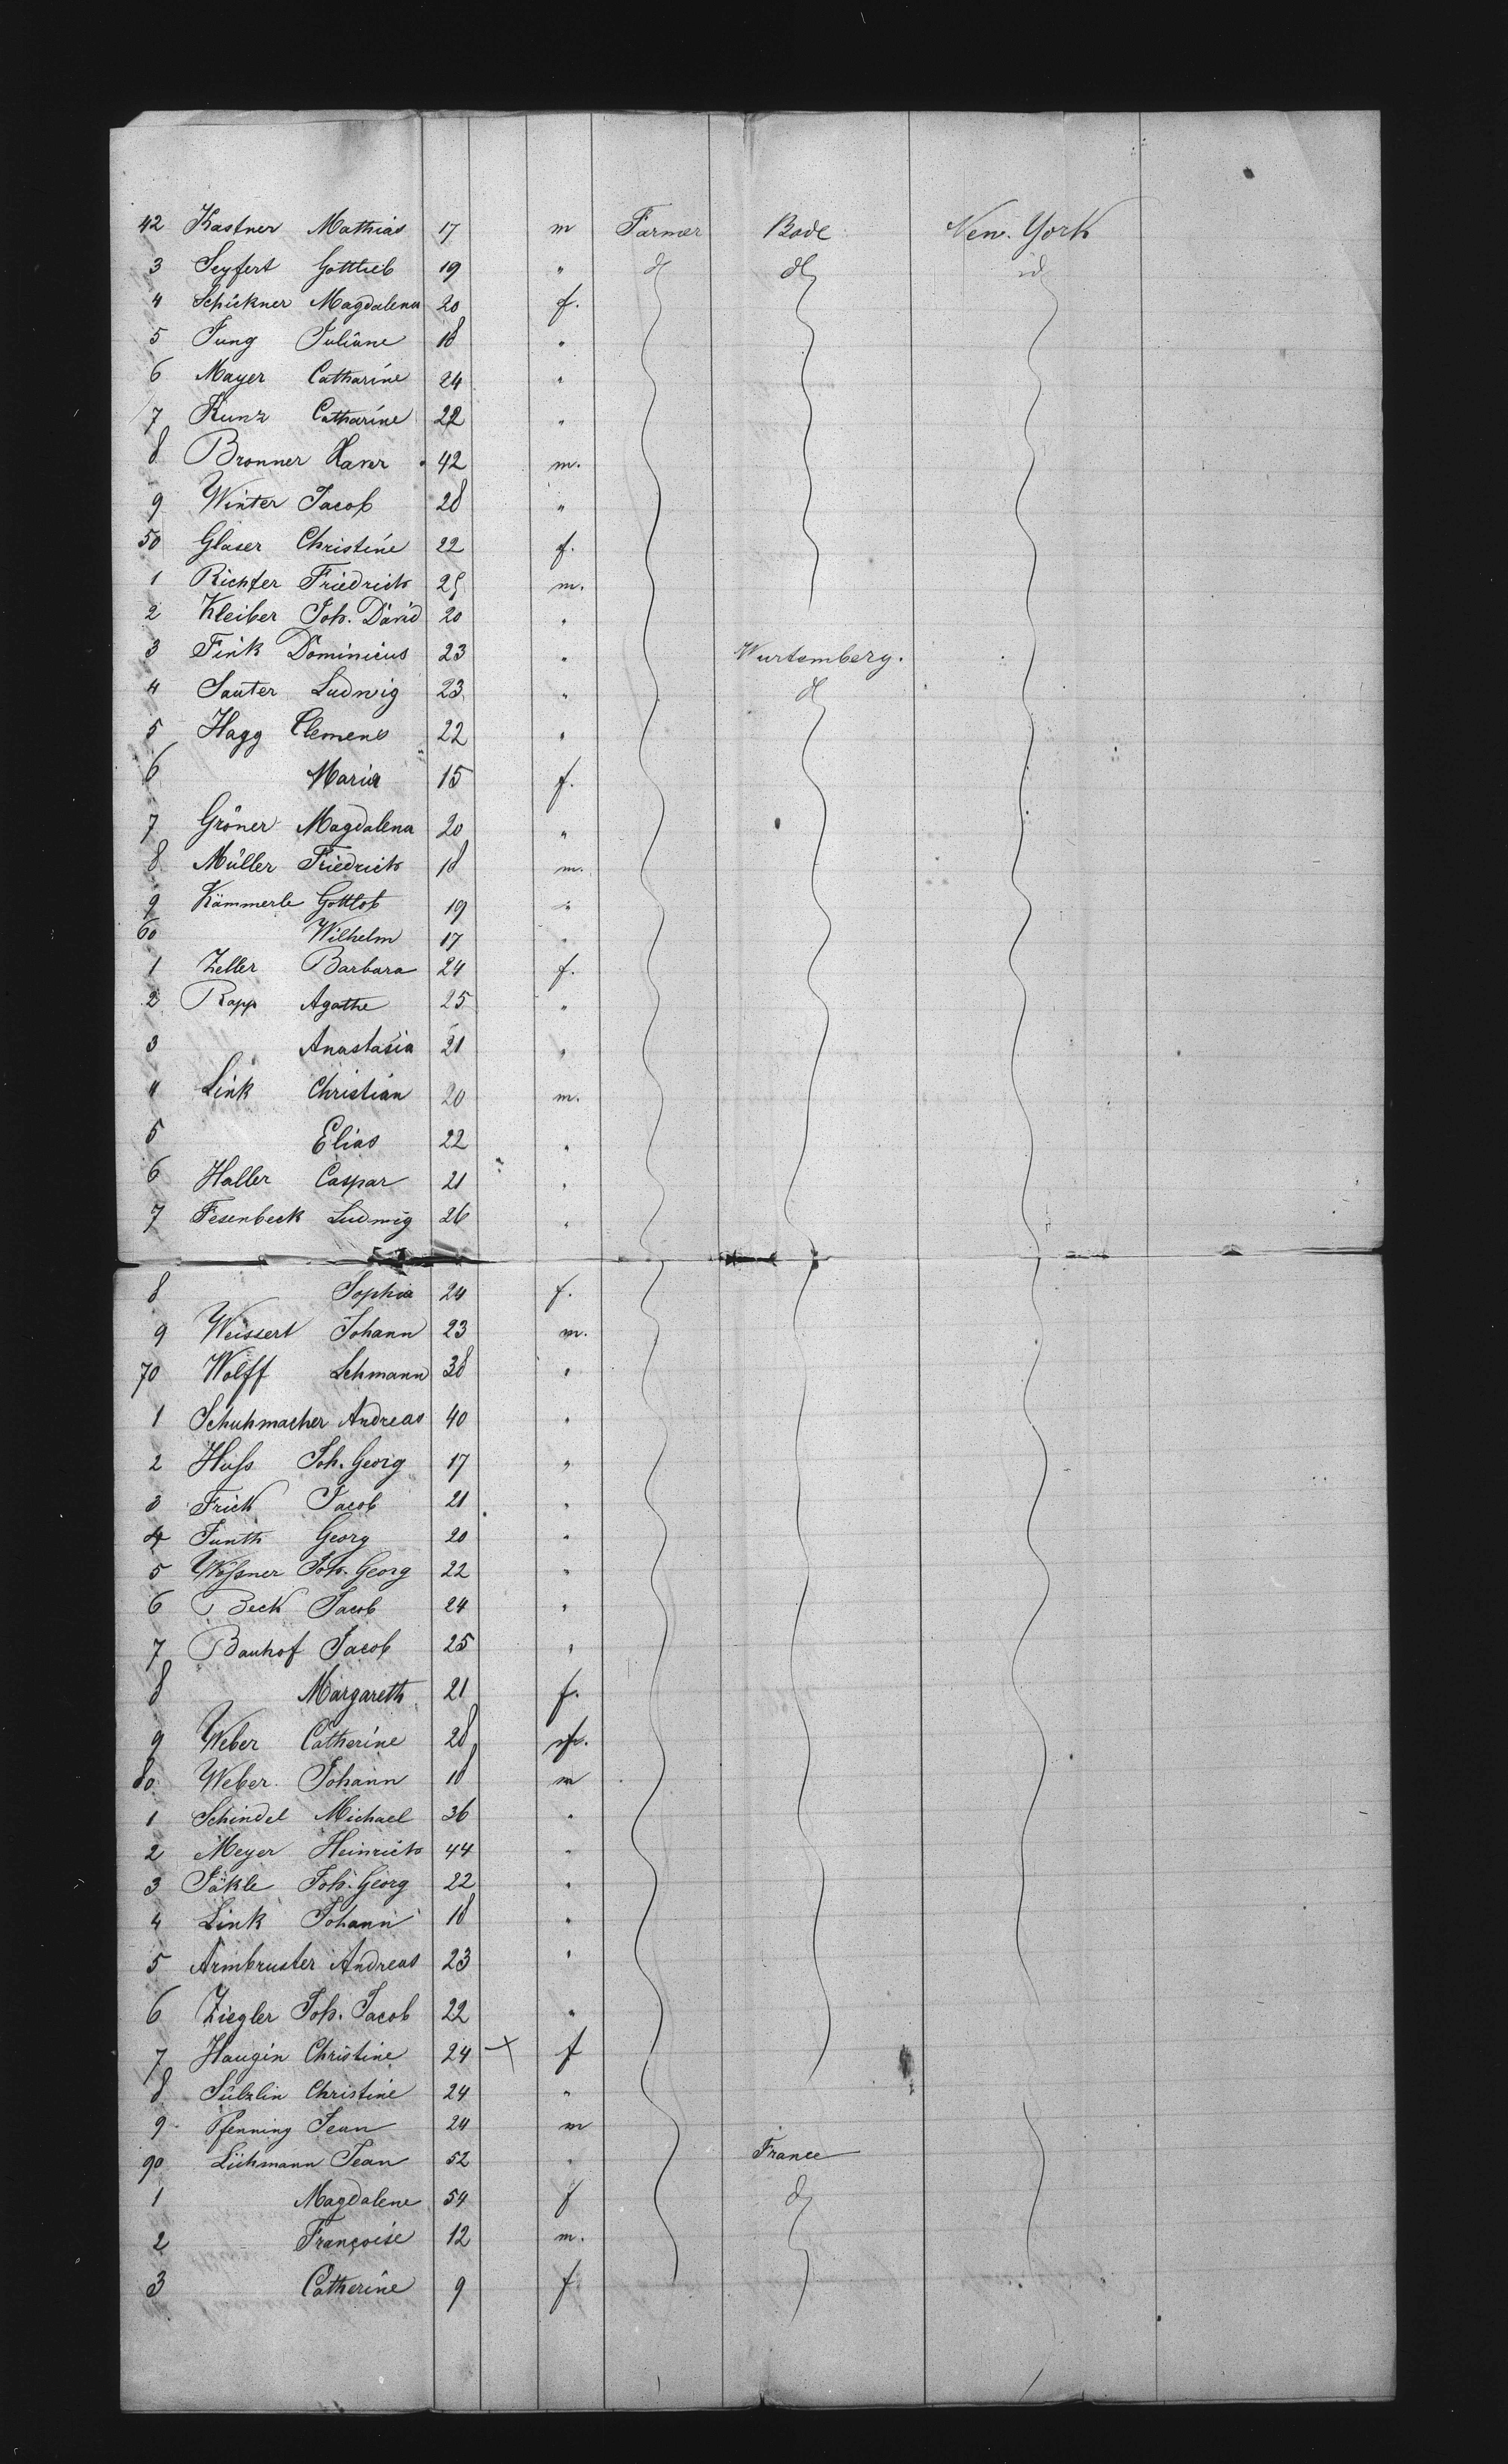 42 Kastner Mathias 17 m Farmer Bade New-York
3 Seyfert Gottlieb 19 " d d id
4 Schickner Magdalena 20 f.
5 Jung Juliane 18 "
6 Mayer Catharine 24 "
7 Kunz Catharine 22 "
8 Bronner Xaver 42 m.
9 Winter Jacob 28 "
50 Glaser Christine 22 f.
1 Richter Friedrich 25 m.
2 Kleiber Joh. David 20 "
3 Fink Dominicus 23 " Wurtemberg.
4 Sauter Ludwig 23 " d
5 Hagg Clemens 22 "
6 Maria 15 f.
7 Gröner Magdalena 20 "
8 Müller Friedrich 18 m.
9 Kämmerle Gottlob 19 "
60 Wilhelm 17 "
1 Zeller Barbara 24 f.
2 Rapp Agathe 25 "
3 Anastasia 21 "
4 Link Christian 20 m.
5 Elias 22 "
6 Haller Caspar 21 "
7 Fesenbeck Ludwig 26 "
8 Sophia 24 f.
9 Weissert Johann 23 m.
70 Wolff Lehmann 38 "
1 Schuhmacher Andreas 40 "
2 Huſs Joh. Georg 17 "
3 Frick Jacob 21 "
4 Junth Georg 20 "
5 Wöſsner Joh. Georg 22 "
6 Beck Jacob 24 "
7 Bauhof Jacob 25 "
8 Margareth 21 f.
9 Weber Catherine 28 f.
80 Weber Johann 18 m
1 Schindel Michael 36 "
2 Meyer Heinrich 44 "
3 Jäkle Joh. Georg 22 "
4 Link Johann 18 "
5 Armbruster Andreas 23 "
6 Ziegler Joh. Jacob 22 "
7 Haugin Christine 24 + f
8 Sülzlin Christine 24 "
9 Pfenning Jean 24 m
90 Lichmann Jean 52 " France
1 Magdalene 54 f d
2 Françoise 12 m.
3 Catherine 9 f